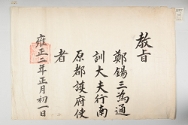 教旨
鄭錫三爲通
訓大夫行南
原都護府使
者
雍正二年正月初一日